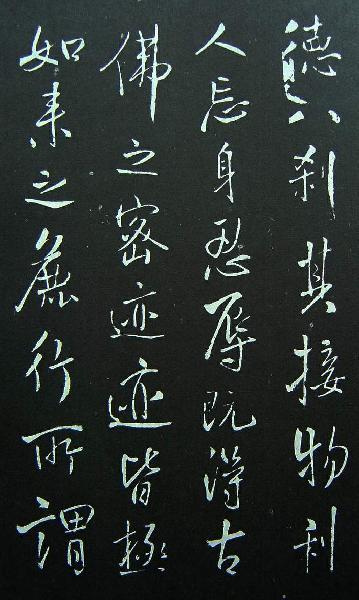 刹其接物利
人忘身忍辱既得古
佛之密迹迹皆極
如来之麁行所謂